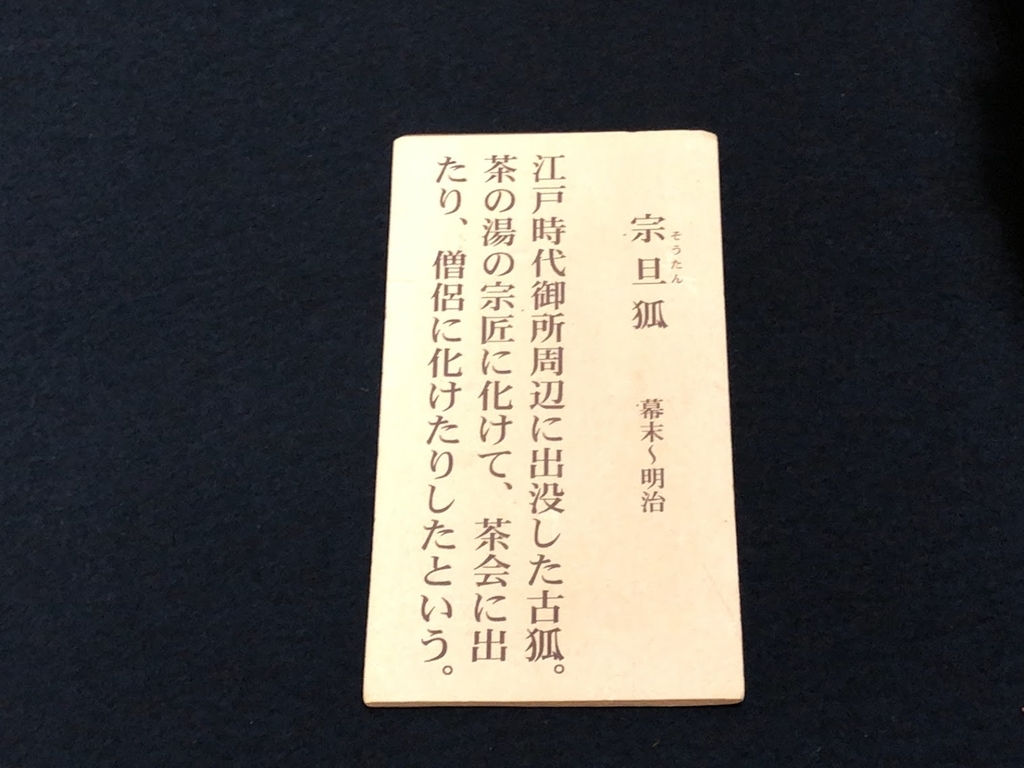 宗旦狐 幕末～明治
そうたん
江戸時代御所周辺に出没した古狐。
茶の湯の宗匠に化けて、茶会に出
たり、僧侶に化けたりしたという。